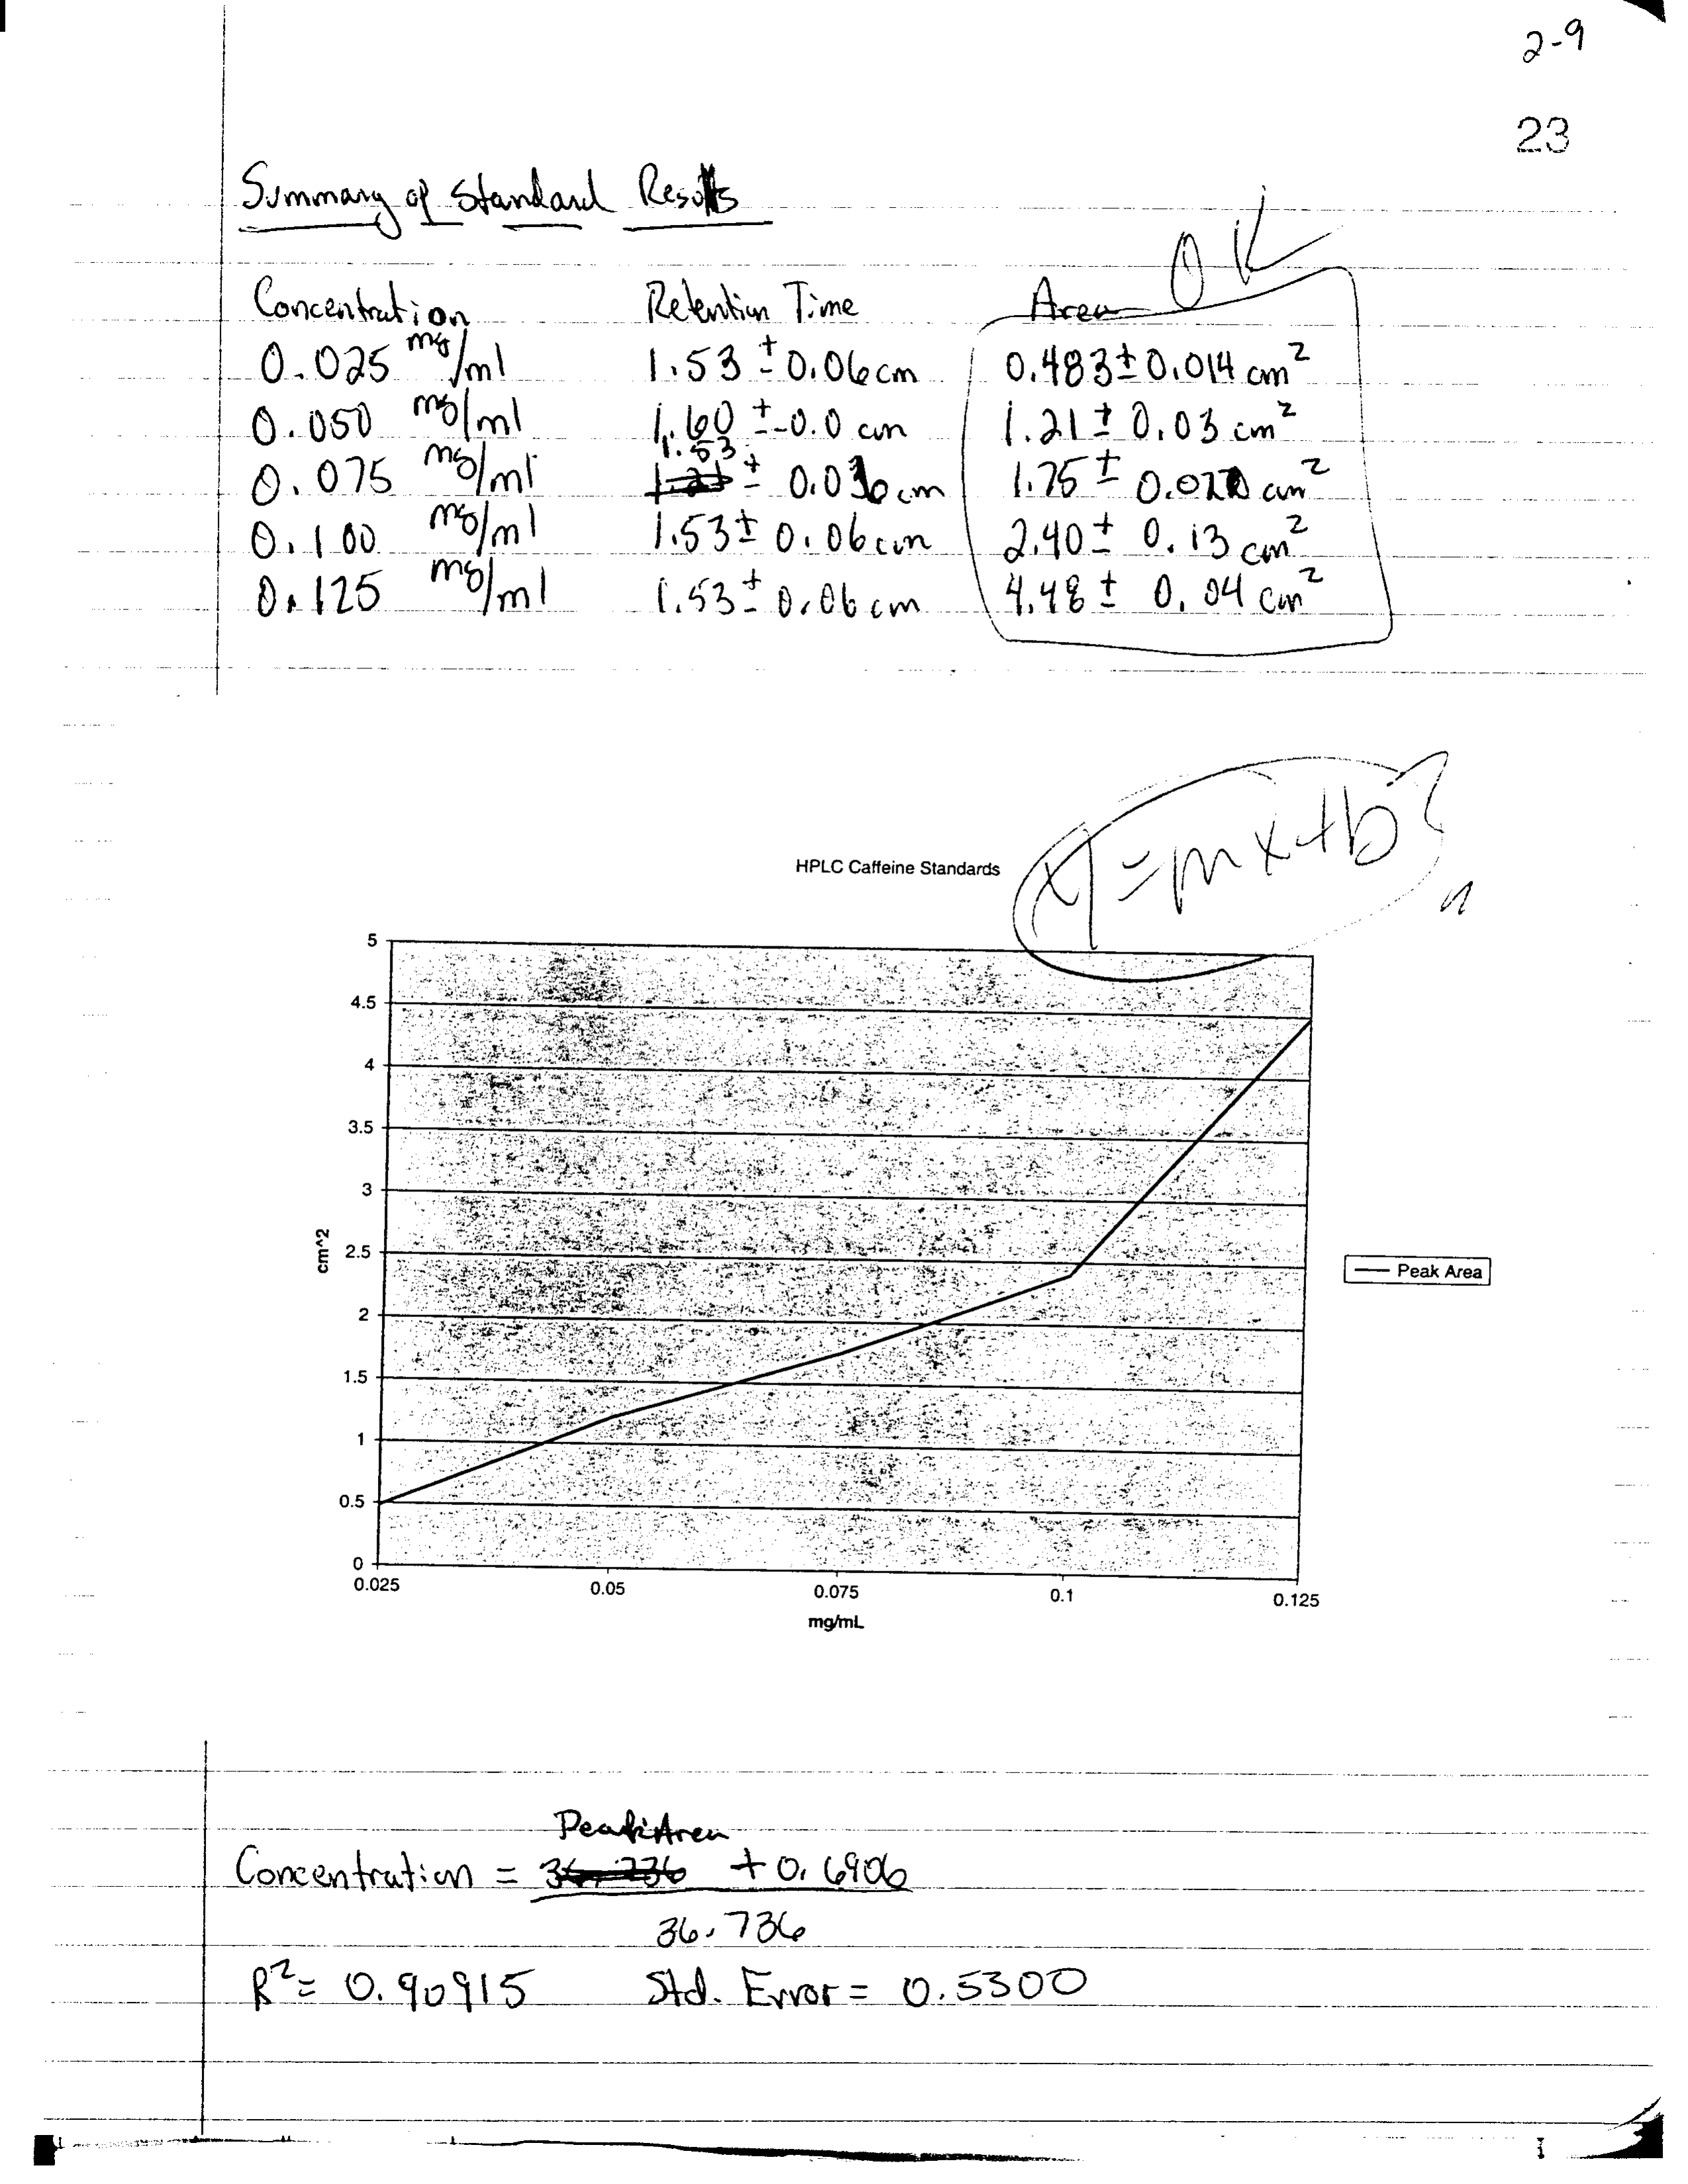 2-9
23
Summary of Standard Results
OK
Concentration Retention Time Area
0.025 mg/ml 1.53 ± 0.06 cm 0.483 ± 0.014 cm²
0.050 mg/ml 1.60 ± 0.0 cm 1.21 ± 0.03 cm²
0.075 mg/ml 1.53 ± cm 1.75 ± cm²
0.100 mg/ml 1.53 ± 0.06 cm 2.40 ± 0.13 cm²
0.125 mg/ml 1.53 ± 0.06 cm 4.48 ± 0.04 cm²
y = mx+b?
HPLC Caffeine Standards
5
4.5
4
3.5
3
2.5
2
1.5
1
0.5
0
cm^2
Peak Area
0.025 0.05 0.075 0.1 0.125
mg/mL
Peak Area
Concentration = 36.736 + 0.6906
36.736
R² = 0.90915 Std. Error = 0.5300